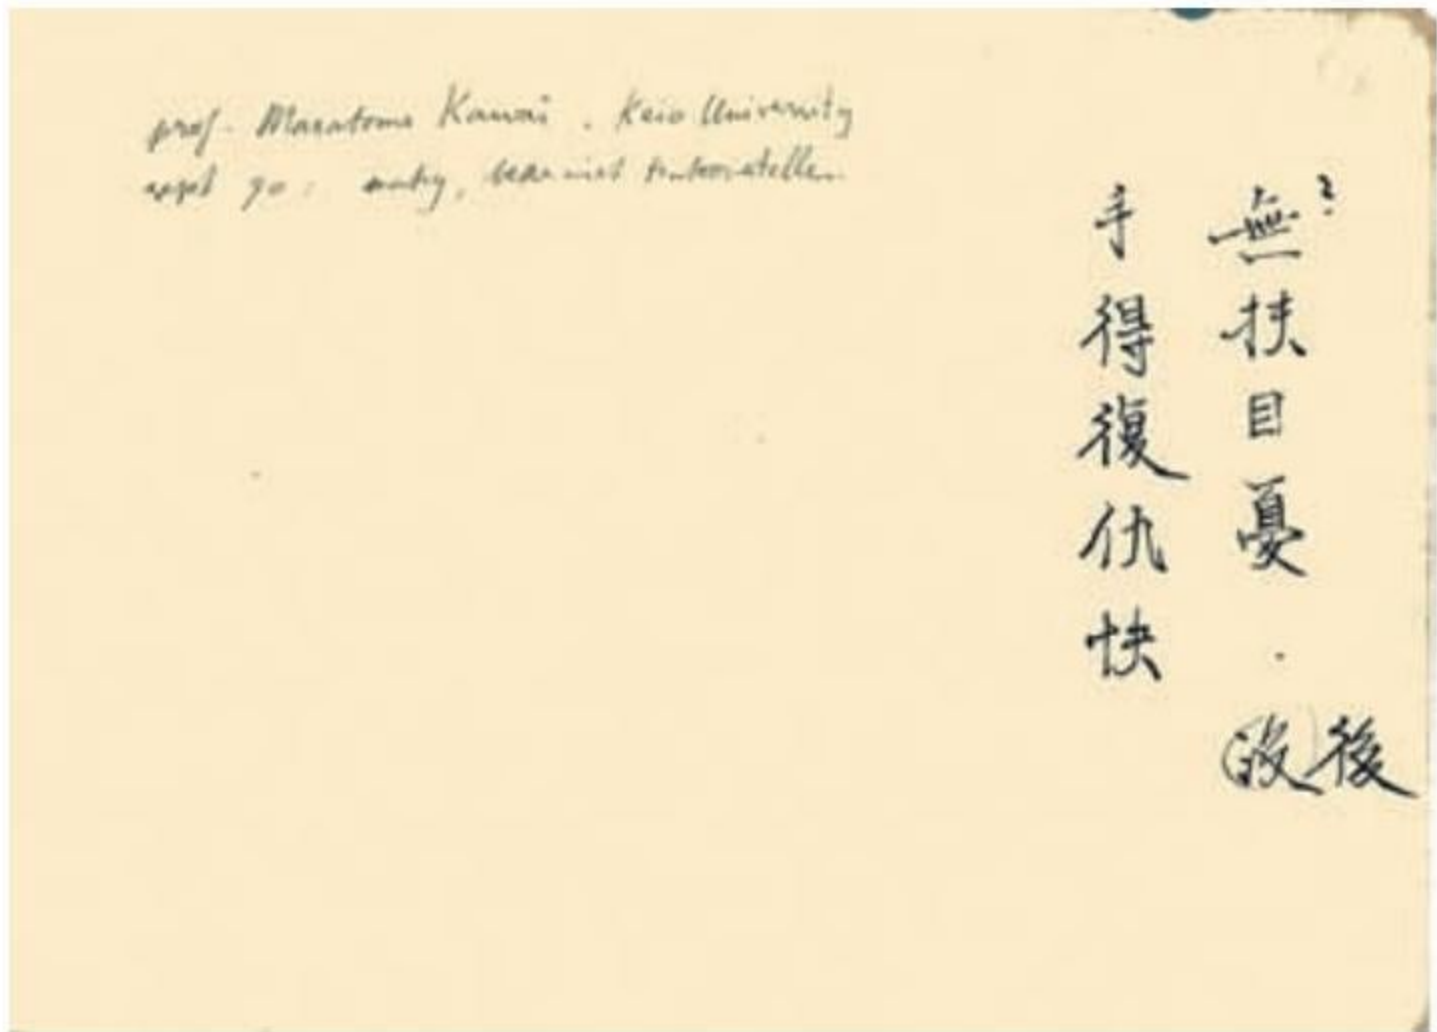 prof. Masatomo Kawai . Keio University
sept 90 :
?
無扶目憂 . (改) 後
手得復仇快